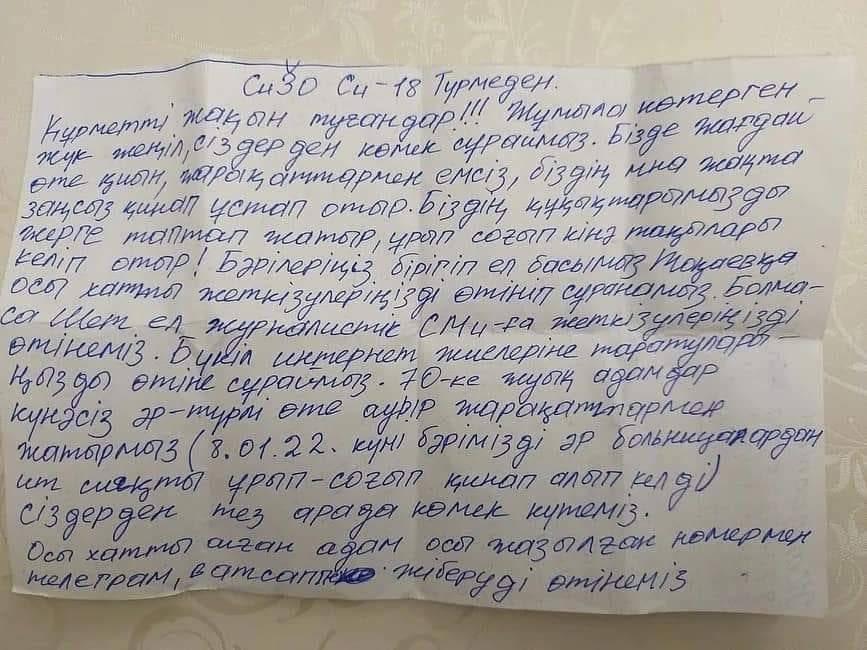 СиЗО Си-18 Түрмеден.
Құрметті жақын туғандар!!! Жұмыла көтерген
жүк жеңіл, сіздерден көмек сұраймыз. Бізде жағдай
өте қиын, жарақаттармен емсіз, біздің мна жақта
заңсыз қинап ұстап отыр. Біздің құқықтарымызды
жерге таптап жатыр, ұрып соғып кінә тақылары
келіп отыр! Бәрілеріңіз бірігіп ел басымыз Тоқаевқа
осы хатты жеткізулеріңізді өтініп сұранамыз. Болма-
са Шет ел журналистік СМи-ға жеткізулеріңізді
өтінеміз. Бүкіл интернет жиелеріне таратулары-
ңызды өтіне сұраймыз. 70-ке жуық адамдар
күнәсіз әр-түрлі өте ауір жарақаттармен
жатырмыз (8.01.22. күні бәрімізді әр больницалардан
ит сиқты ұрып-соғып қинап алып келді)
сіздерден тез арада көмек күтеміз.
Осы хатты алған адам осы жазылған номермен
телеграм, ватсап жіберуді өтінеміз